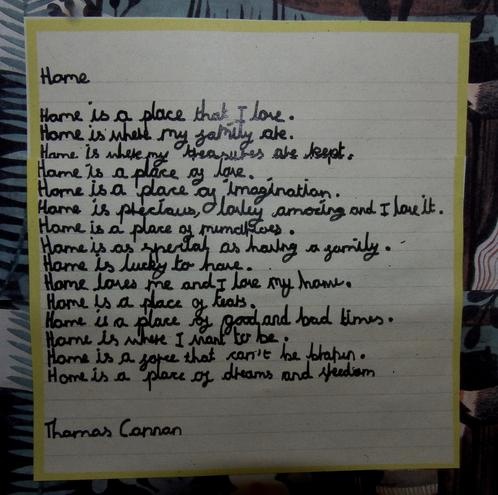 Home
Home is a place that I love.
Home is where my family are.
Home is where my treasures are kept.
Home is a place of love.
Home is a place of imagination.
Home is precious, lovley amazing and I love it.
Home is a place of
Home is as special as having a family.
Home is lucky to have.
Home loves me and I love my home.
Home is a place of tears.
Home is a place of good and bad times.
Home is where I want to be.
Home is a that can't be
Home is a place of dreams and freedom
Thomas Cannan